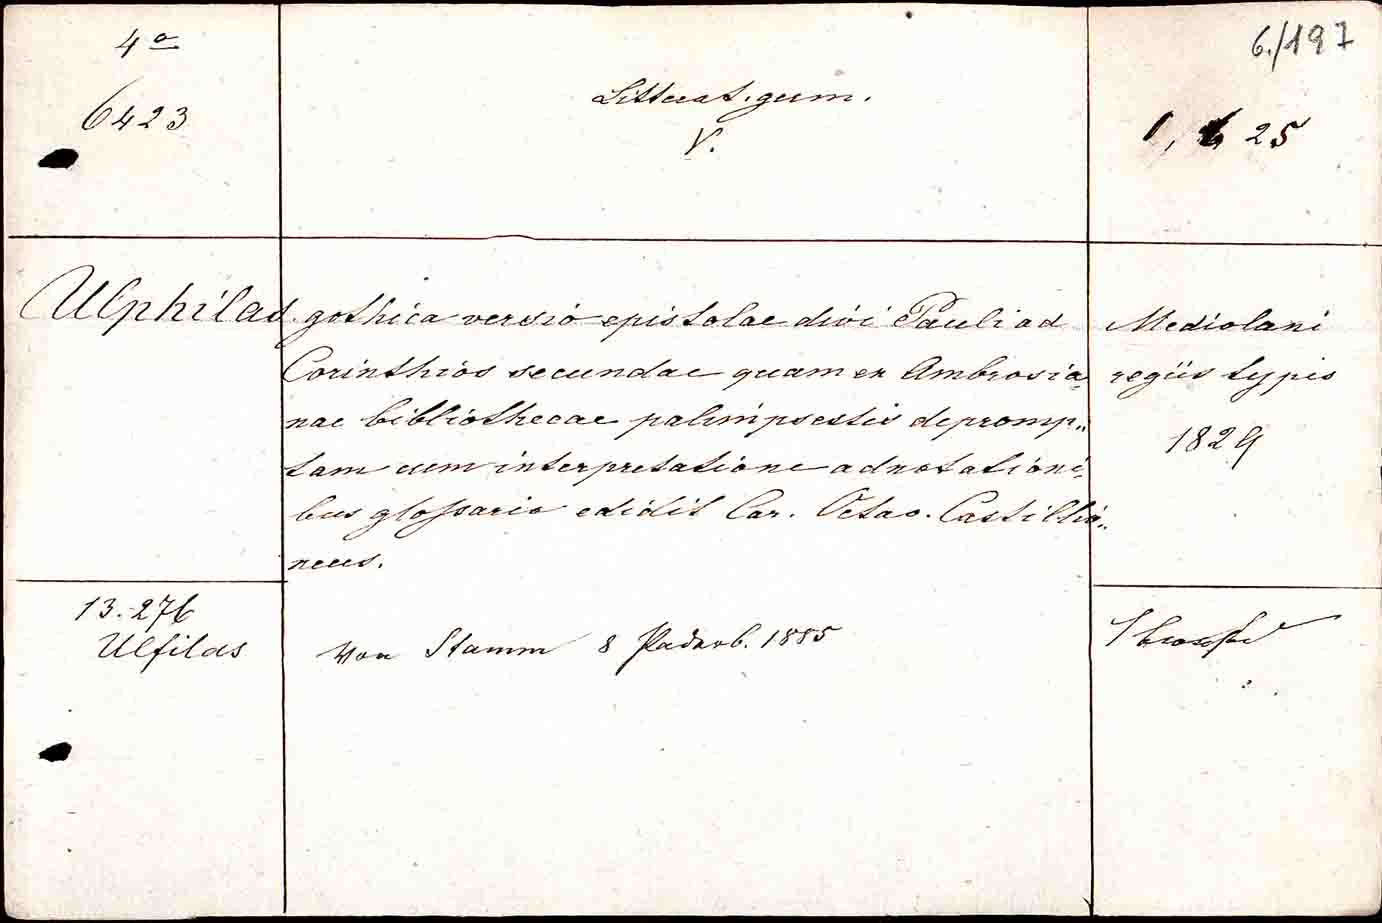 4º
6./197
6423
Litterat. germ.
V.
1, 25
Ulphilas gothica versio epistolae divi Pauli ad
Corinthios secundae quam ex Ambrosia-
nae bibliothecae palimpsestis depromp-
tam cum interpretatione adnotationi-
bus glossario edidit Car. Octav. Castillio-
neus.
Mediolani
regiis typis
1829
13.276
Ulfilas
von Stamm 8 Paderb. 1885